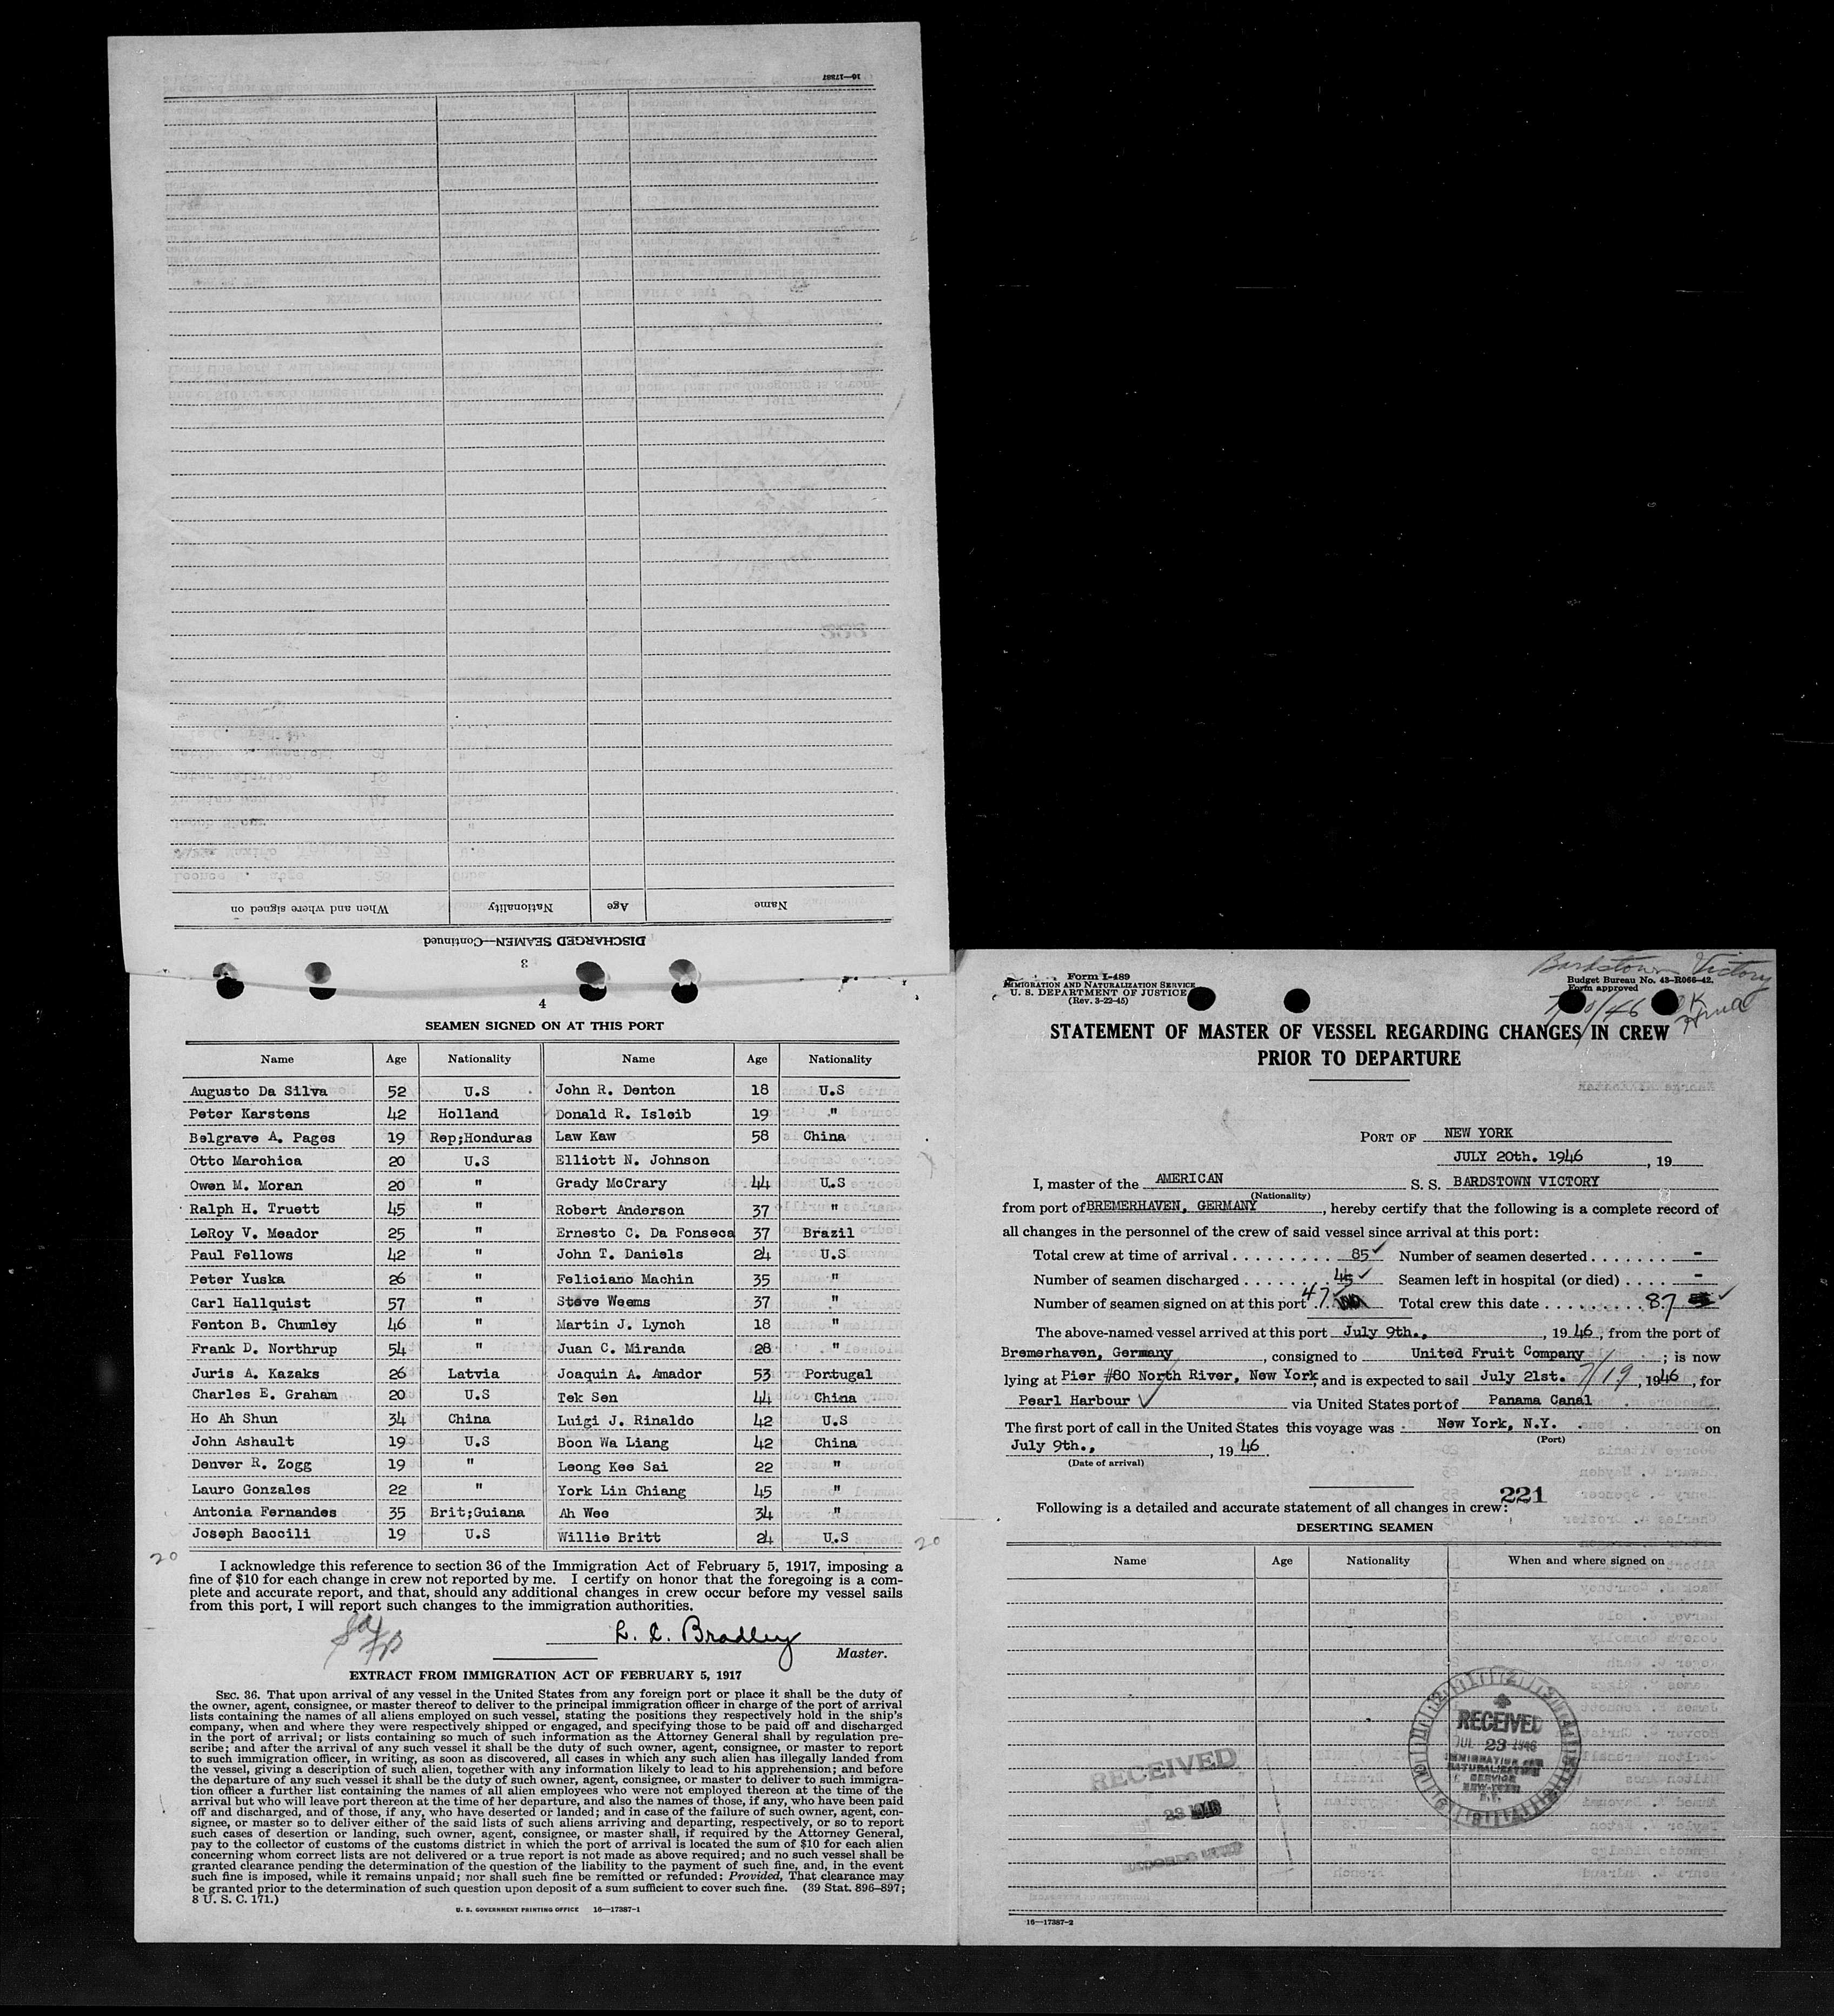 16—17387
Name Age Nationality When and where signed on
DISCHARGED SEAMEN—Continued
3
4
SEAMEN SIGNED ON AT THIS PORT
Name Age Nationality Name Age Nationality
Augusto Da Silva 52 U.S John R. Denton 18 U.S
Peter Karstens 42 Holland Donald R. Isleib 19 "
Belgrave A. Pages 19 Rep;Honduras Law Kaw 58 China
Otto Marchica 20 U.S Elliott N. Johnson
Owen M. Moran 20 " Grady McCrary 44 U.S
Ralph H. Truett 45 " Robert Anderson 37 "
LeRoy V. Meador 25 " Ernesto C. Da Fonseca 37 Brazil
Paul Fellows 42 " John T. Daniels 24 U.S
Peter Yuska 26 " Feliciano Machin 35 "
Carl Hallquist 57 " Steve Weems 37 "
Fenton B. Chumley 46 " Martin J. Lynch 18 "
Frank D. Northrup 54 " Juan C. Miranda 28 "
Juris A. Kazaks 26 Latvia Joaquin A. Amador 53 Portugal
Charles E. Graham 20 U.S Tek Sen 44 China
Ho Ah Shun 34 China Luigi J. Rinaldo 42 U.S
John Ashault 19 U.S Boon Wa Liang 42 China
Denver R. Zogg 19 " Leong Kee Sai 22 "
Lauro Gonzales 22 " York Lin Chiang 45 "
Antonia Fernandes 35 Brit;Guiana Ah Wee 34 "
Joseph Baccili 19 U.S Willie Britt 24 U.S
20 20
I acknowledge this reference to section 36 of the Immigration Act of February 5, 1917, imposing a
fine of $10 for each change in crew not reported by me. I certify on honor that the foregoing is a com-
plete and accurate report, and that, should any additional changes in crew occur before my vessel sails
from this port, I will report such changes to the immigration authorities.
L. L. Bradley
Master.
EXTRACT FROM IMMIGRATION ACT OF FEBRUARY 5, 1917
SEC. 36. That upon arrival of any vessel in the United States from any foreign port or place it shall be the duty of
the owner, agent, consignee, or master thereof to deliver to the principal immigration officer in charge of the port of arrival
lists containing the names of all aliens employed on such vessel, stating the positions they respectively hold in the ship's
company, when and where they were respectively shipped or engaged, and specifying those to be paid off and discharged
in the port of arrival; or lists containing so much of such information as the Attorney General shall by regulation pre-
scribe; and after the arrival of any such vessel it shall be the duty of such owner, agent, consignee, or master to report
to such immigration officer, in writing, as soon as discovered, all cases in which any such alien has illegally landed from
the vessel, giving a description of such alien, together with any information likely to lead to his apprehension; and before
the departure of any such vessel it shall be the duty of such owner, agent, consignee, or master to deliver to such immigra-
tion officer a further list containing the names of all alien employees who were not employed thereon at the time of the
arrival but who will leave port thereon at the time of her departure, and also the names of those, if any, who have been paid
off and discharged, and of those, if any, who have deserted or landed; and in case of the failure of such owner, agent, con-
signee, or master so to deliver either of the said lists of such aliens arriving and departing, respectively, or so to report
such cases of desertion or landing, such owner, agent, consignee, or master shall, if required by the Attorney General,
pay to the collector of customs of the customs district in which the port of arrival is located the sum of $10 for each alien
concerning whom correct lists are not delivered or a true report is not made as above required; and no such vessel shall be
granted clearance pending the determination of the question of the liability to the payment of such fine, and, in the event
such fine is imposed, while it remains unpaid; nor shall such fine be remitted or refunded: Provided, That clearance may
be granted prior to the determination of such question upon deposit of a sum sufficient to cover such fine. (39 Stat. 896–897;
8 U. S. C. 171.)
U. S. GOVERNMENT PRINTING OFFICE 16—17387-1
Bardstown Victory
Form I-489
IMMIGRATION AND NATURALIZATION SERVICE
U. S. DEPARTMENT OF JUSTICE
(Rev. 3-22-45)
Budget Bureau No. 43-R066-42.
Form approved
STATEMENT OF MASTER OF VESSEL REGARDING CHANGES IN CREW
PRIOR TO DEPARTURE
PORT OF NEW YORK
JULY 20th. 1946, 19
I, master of the AMERICAN S. S. BARDSTOWN VICTORY
(Nationality)
from port of BREMERHAVEN, GERMANY, hereby certify that the following is a complete record of
all changes in the personnel of the crew of said vessel since arrival at this port:
Total crew at time of arrival 85 Number of seamen deserted -
Number of seamen discharged 45 Seamen left in hospital (or died) -
Number of seamen signed on at this port 47 Total crew this date 87
The above-named vessel arrived at this port July 9th., 1946, from the port of
Bremerhaven, Germany, consigned to United Fruit Company; is now
lying at Pier #60 North River, New York and is expected to sail July 21st. 7/19, 1946, for
Pearl Harbour via United States port of Panama Canal
The first port of call in the United States this voyage was New York, N.Y. on
(Port)
July 9th., 1946.
(Date of arrival)
221
Following is a detailed and accurate statement of all changes in crew:
DESERTING SEAMEN
Name Age Nationality When and where signed on
RECEIVED
JUL 23 1946
IMMIGRATION AND
NATURALIZATION
SERVICE
NEW YORK
N.Y.
RECEIVED
23 1946
16—17387-2